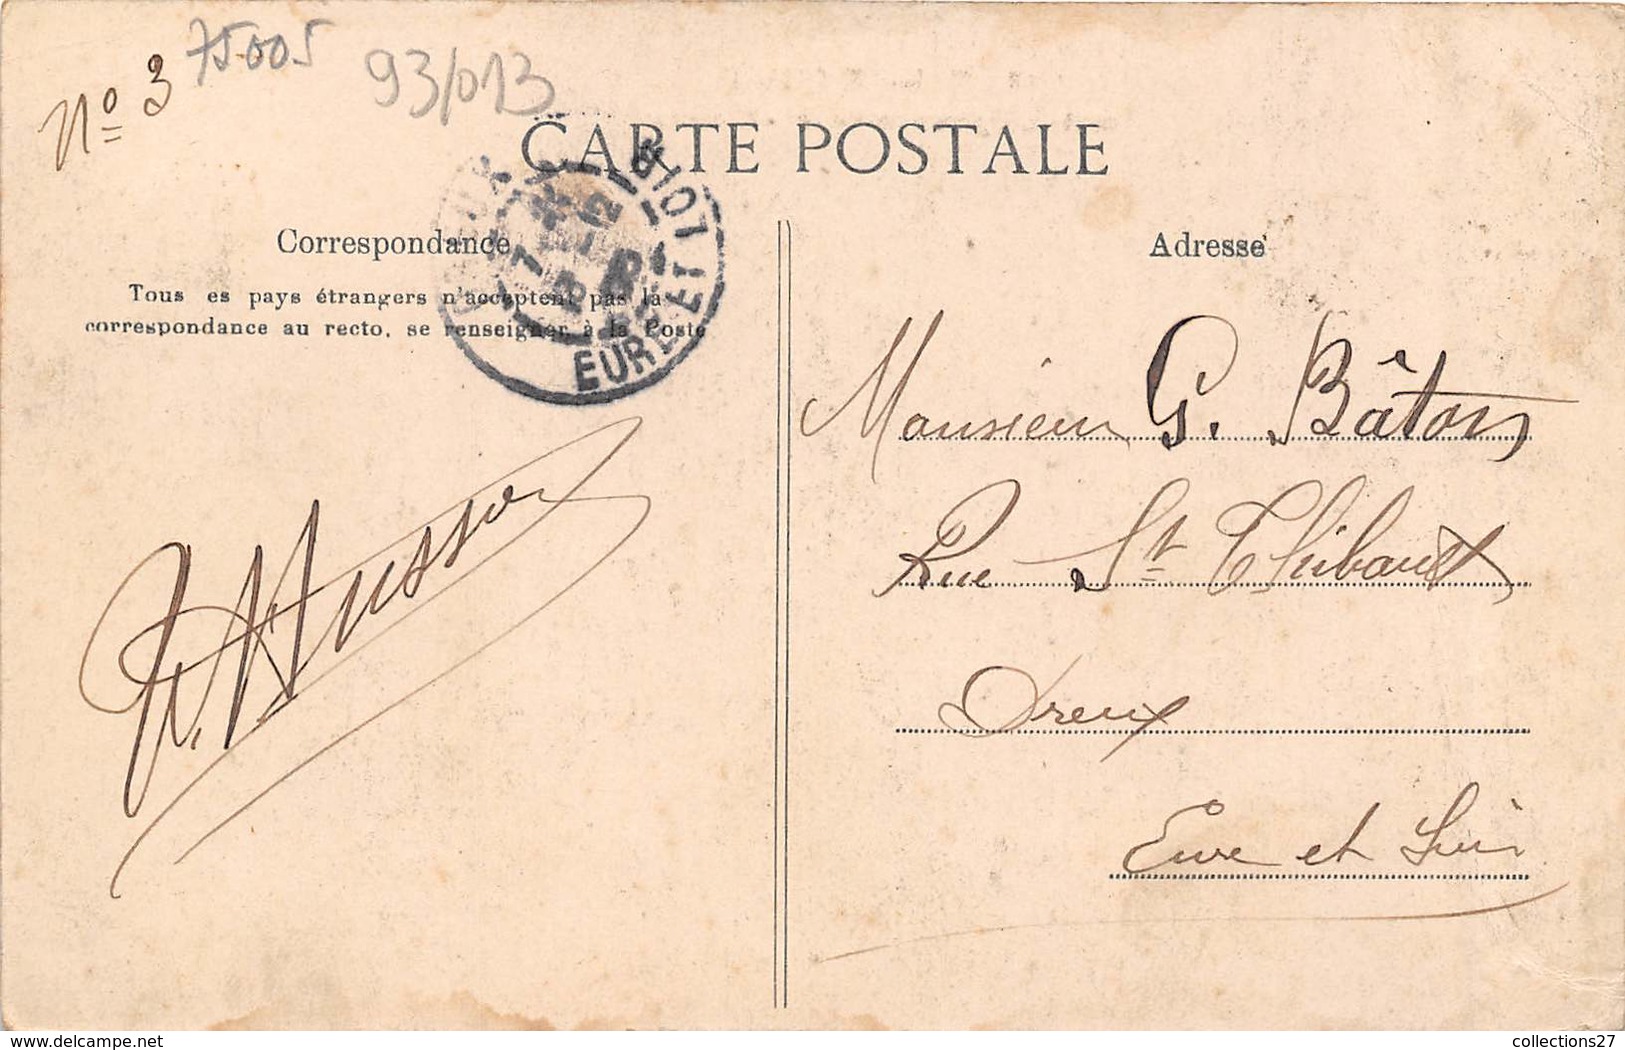 Nº 3
75005
93/013
CARTE POSTALE
Correspondance
Tous es pays étrangers n'acceptent pas la
correspondance au recto, se renseigner à la Poste
EURE ET LOIR
Husson
Adresse
Monsieur G. Bâton
Rue St Thibault
Dreux
Eure et Loir
delcampe.net
collections27